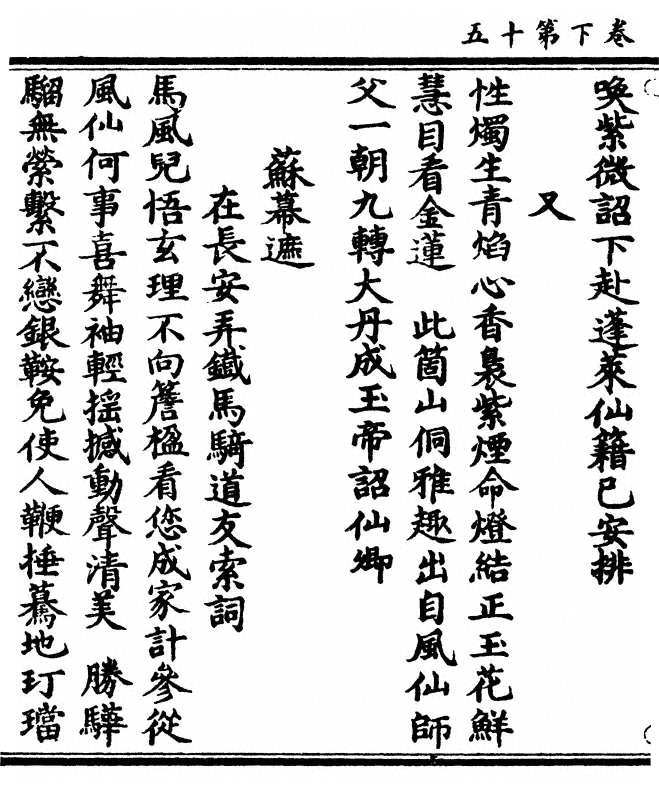 卷下第十五
喚紫微詔下赴蓬萊仙籍已安排
又
性燭生青焰心香裊紫煙命燈結正玉花鮮
慧目看金蓮　此箇山侗雅趣出自風仙師
父一朝九轉大丹成玉帝詔仙卿
蘇幕遮
在長安弄鐵馬騎道友索詞
馬風兒悟玄理不向簷楹看您成家計參從
風仙何事喜舞袖輕搖撼動聲清美　勝驊
騮無縈繫不戀銀鞍免使人鞭捶驀地玎璫